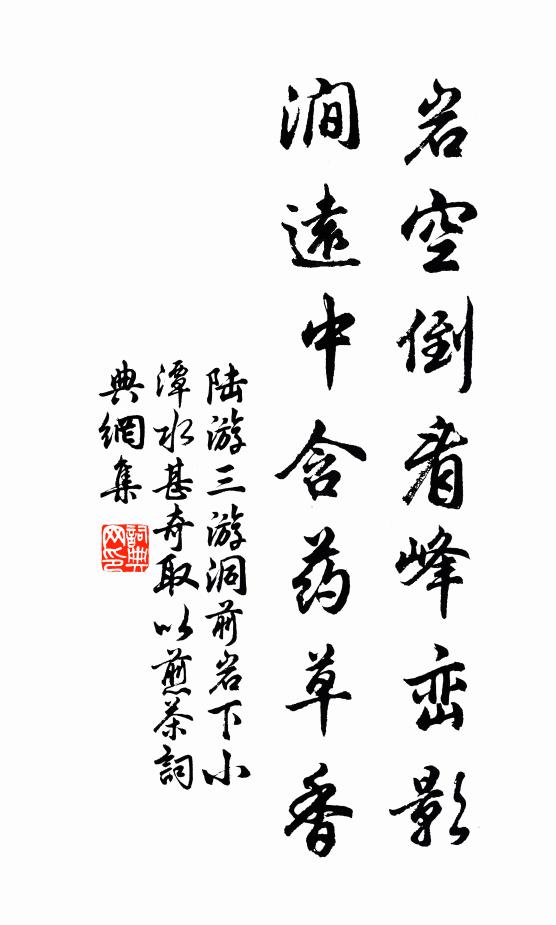 岩空倒看峰峦影
涧遠中含药草香
陆游三游洞前岩下小
潭水甚奇取以煎茶詞
典網集
詞典网印